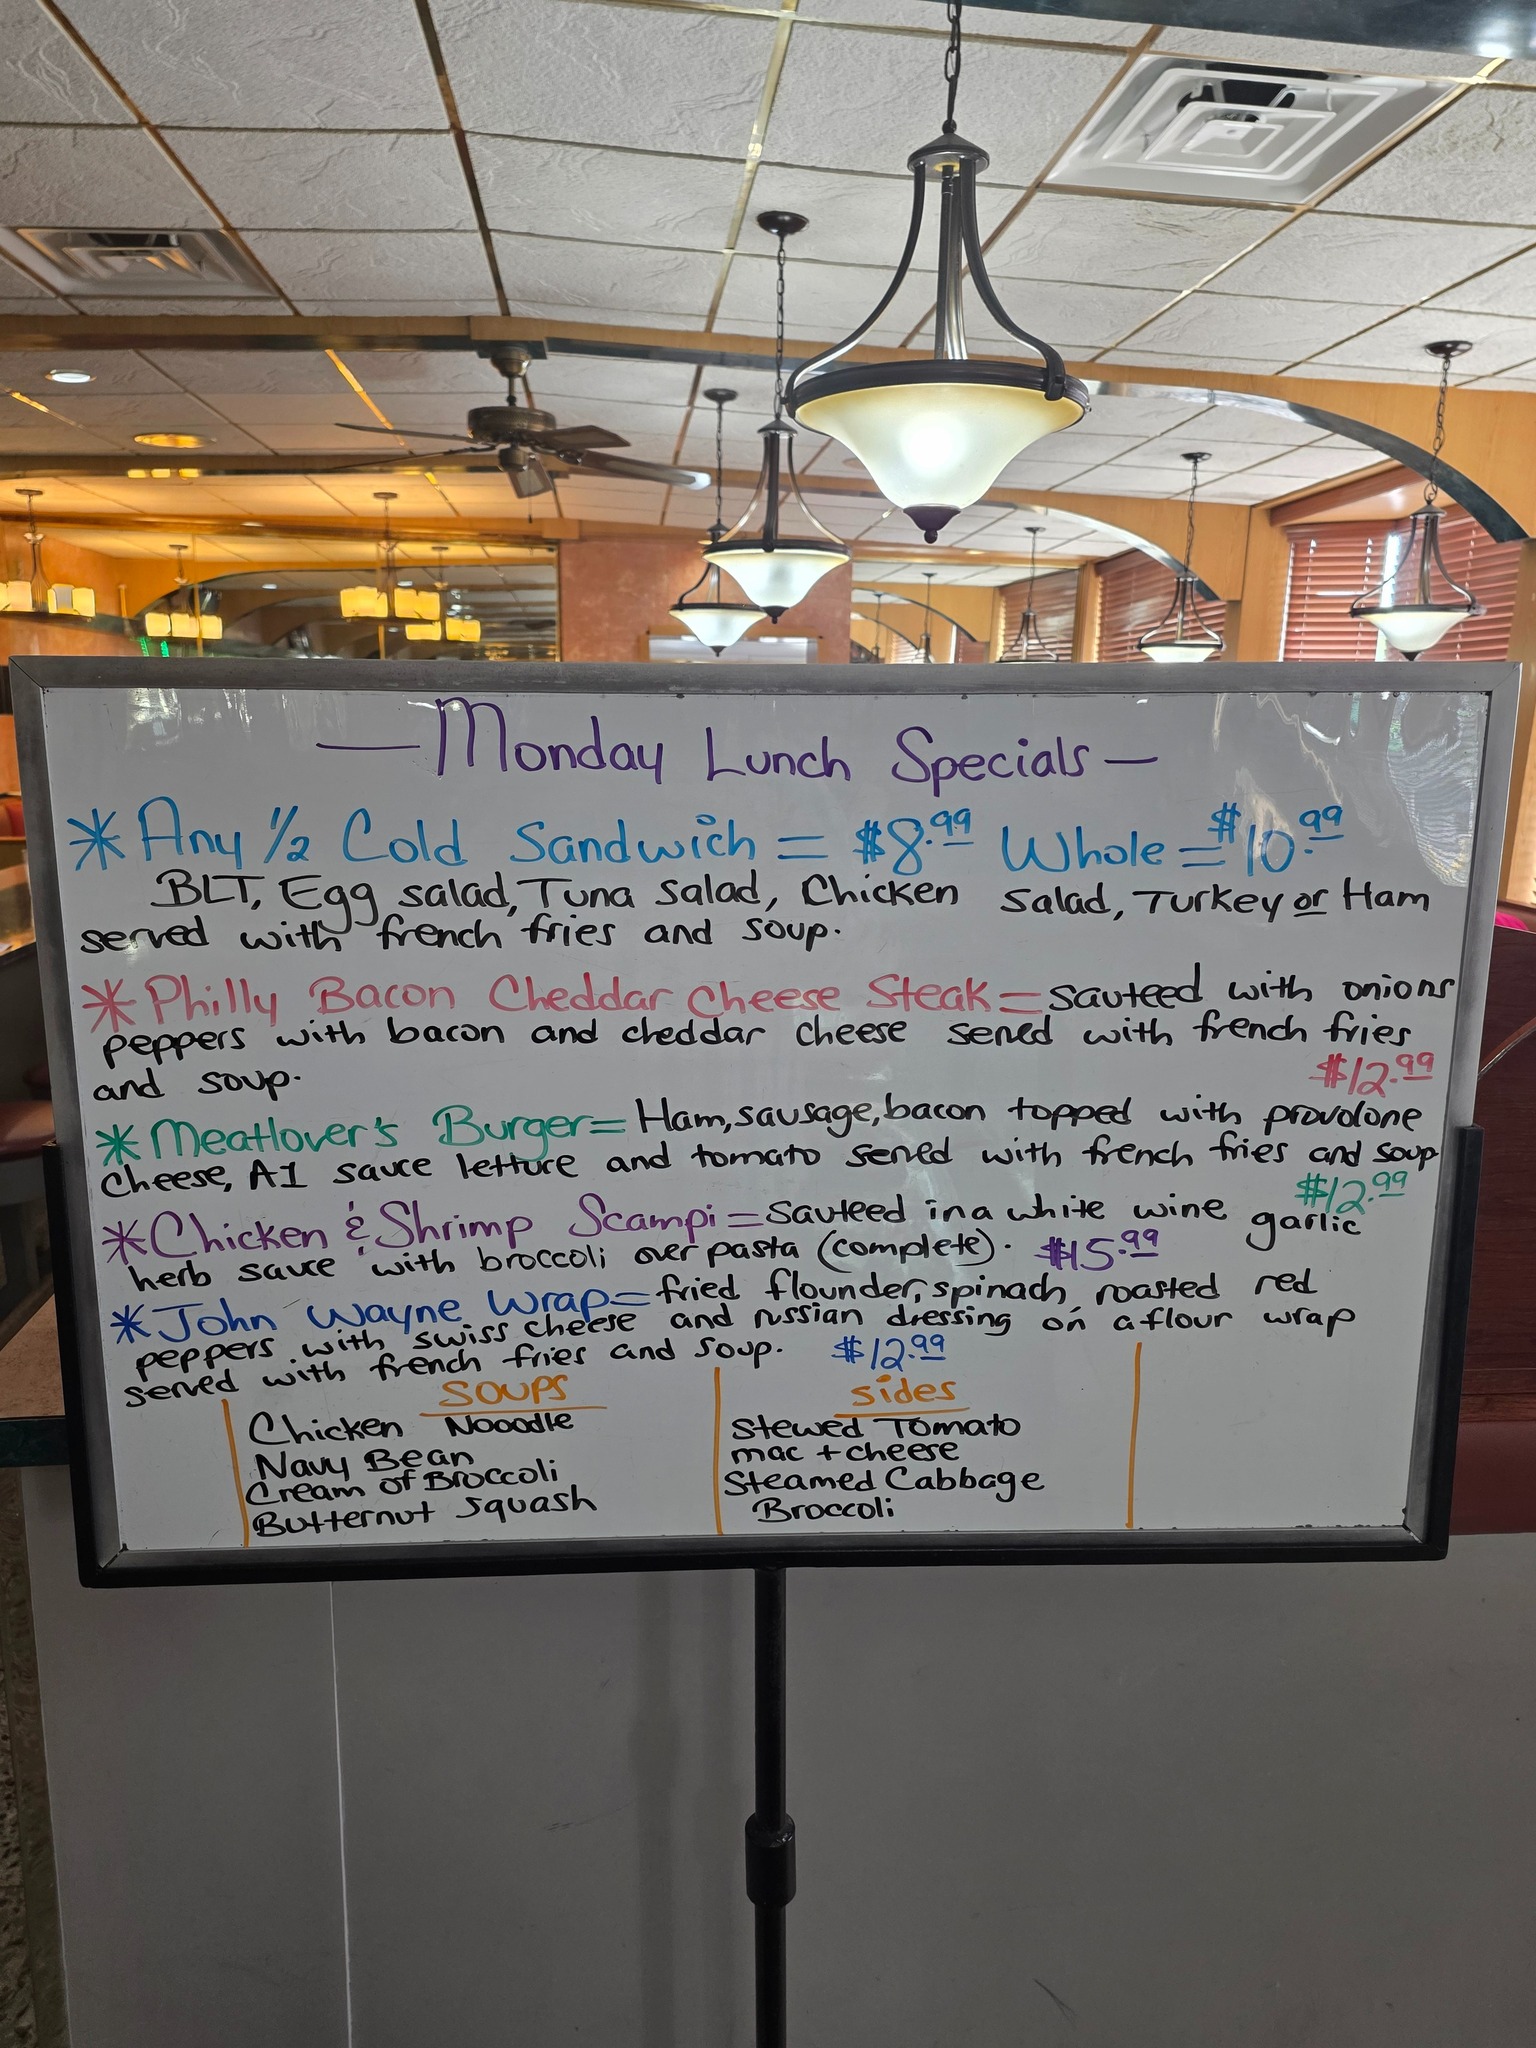 — Monday Lunch Specials —
* Any 1/2 Cold Sandwich = $8.99 Whole = $10.99
BLT, Egg salad, Tuna Salad, Chicken Salad, Turkey or Ham
served with french fries and soup.
* Philly Bacon Cheddar Cheese Steak = sauteed with onions
peppers with bacon and cheddar cheese served with french fries
and soup. $12.99
* Meatlover's Burger = Ham, sausage, bacon topped with provolone
cheese, A1 sauce lettuce and tomato served with french fries and soup
$12.99
* Chicken & Shrimp Scampi = sauteed in a white wine garlic
herb sauce, with broccoli over pasta (complete). $15.99
* John Wayne Wrap = fried flounder, spinach, roasted red
peppers with swiss cheese and russian dressing on a flour wrap
served with french fries and soup. $12.99
SOUPS
Chicken Nooodle
Navy Bean
Cream of Broccoli
Butternut Squash
Sides
Stewed Tomato
mac + cheese
Steamed Cabbage
Broccoli